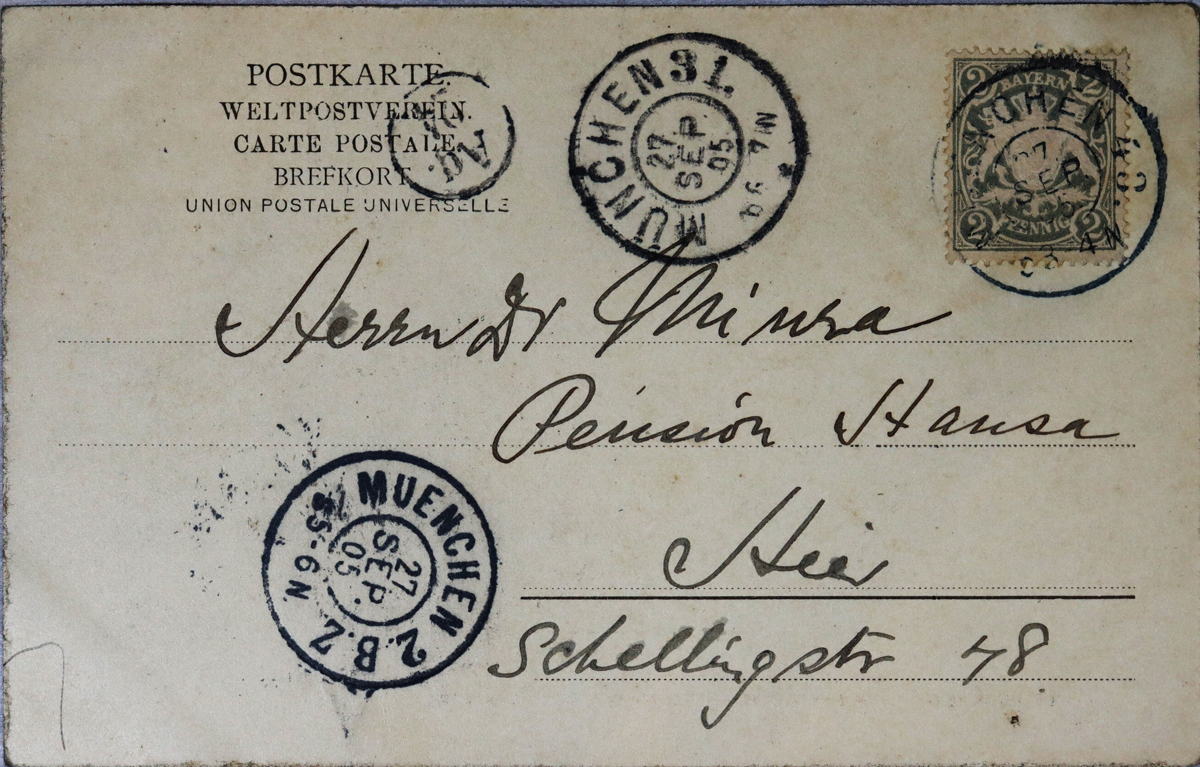 POSTKARTE.
WELTPOSTVEREIN.
CARTE POSTALE.
BREFKORT
UNION POSTALE UNIVERSELLE
MÜNCHEN 31.
27
SEP
05
2 BAYERN 2
2 PFENNIG 2
SEP.
Herrn Dr Miura
Pension Hansa
Hier
Schellingstr 48.
MUENCHEN 2 B.Z.
27
SEP.
05
5-6 N